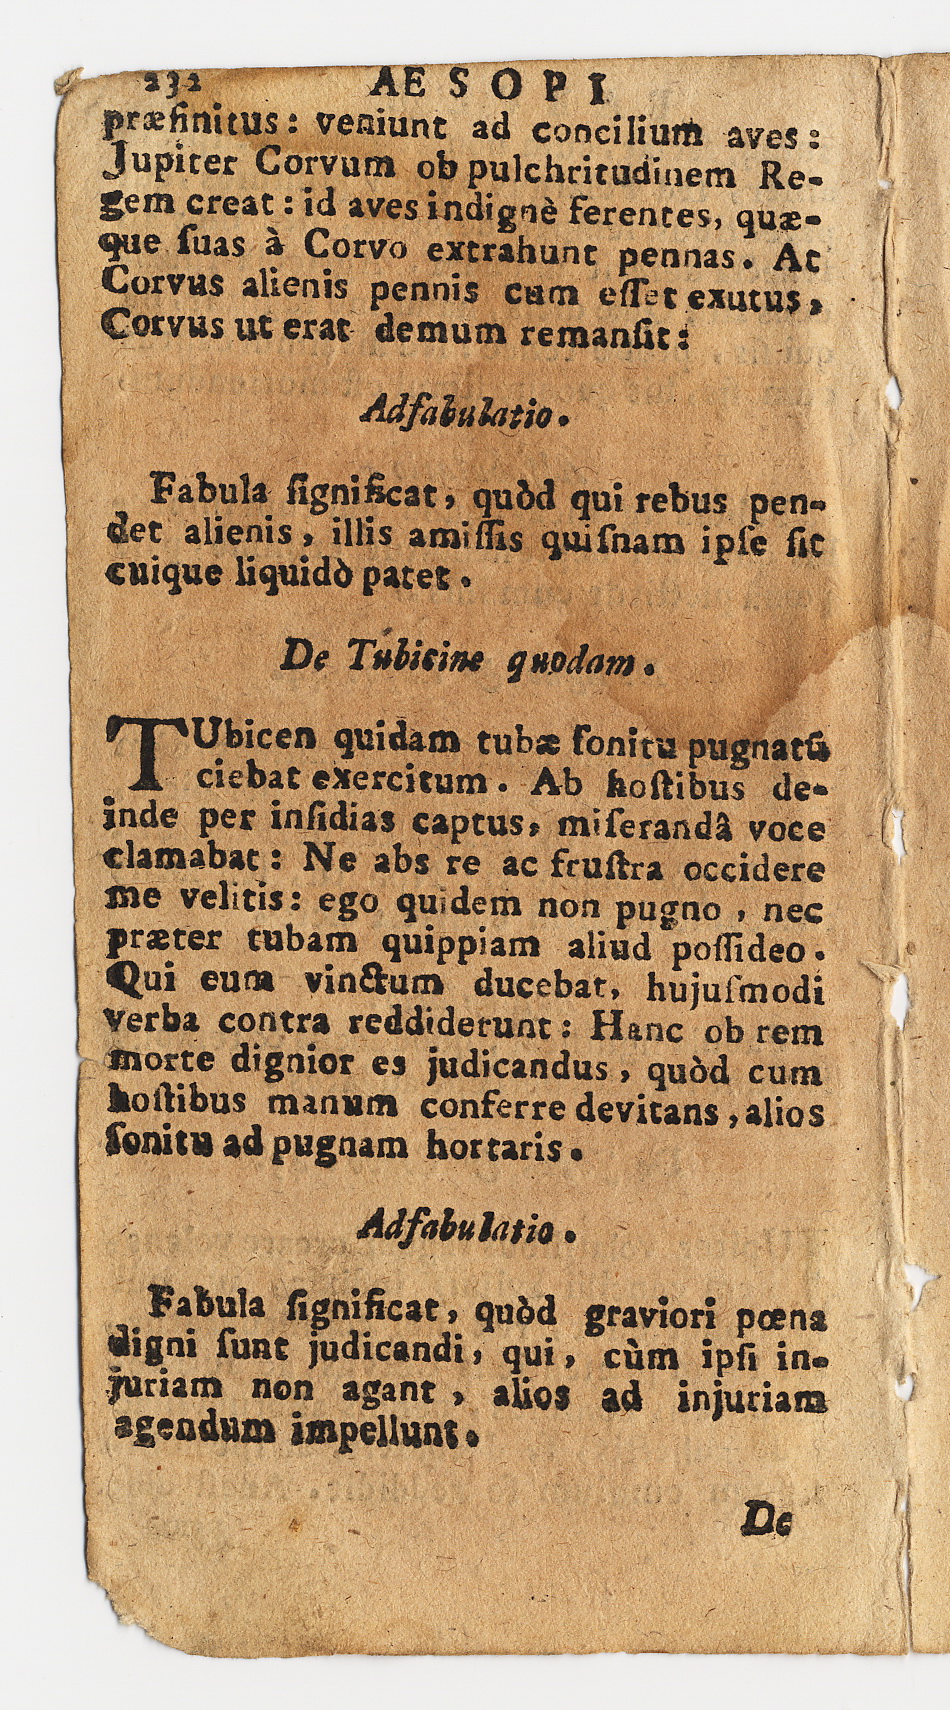 232 AESOPI
præfinitus: veniunt ad concilium aves:
Jupiter Corvum ob pulchritudinem Re-
gem creat: id aves indignè ferentes, quæ-
que ſuas à Corvo extrahunt pennas. At
Corvus alienis pennis cum eſſet exutus,
Corvus ut erat demum remanſit:
Adfabulatio.
Fabula ſignificat, quòd qui rebus pen-
det alienis, illis amiſſis quiſnam ipſe ſit
cuique liquidò patet.
De Tubicine quodam.
TUbicen quidam tubæ ſonitu pugnatũ
ciebat exercitum. Ab hoſtibus de-
inde per inſidias captus, miſerandâ voce
clamabat: Ne abs re ac fruſtra occidere
me velitis: ego quidem non pugno, nec
præter tubam quippiam aliud poſſideo.
Qui eum vinctum ducebat, hujuſmodi
verba contra reddiderunt: Hanc ob rem
morte dignior es judicandus, quòd cum
hoſtibus manum conferre devitans, alios
ſonitu ad pugnam hortaris.
Adfabulatio.
Fabula ſignificat, quòd graviori pœna
digni ſunt judicandi, qui, cùm ipſi in-
juriam non agant, alios ad injuriam
agendum impellunt.
De